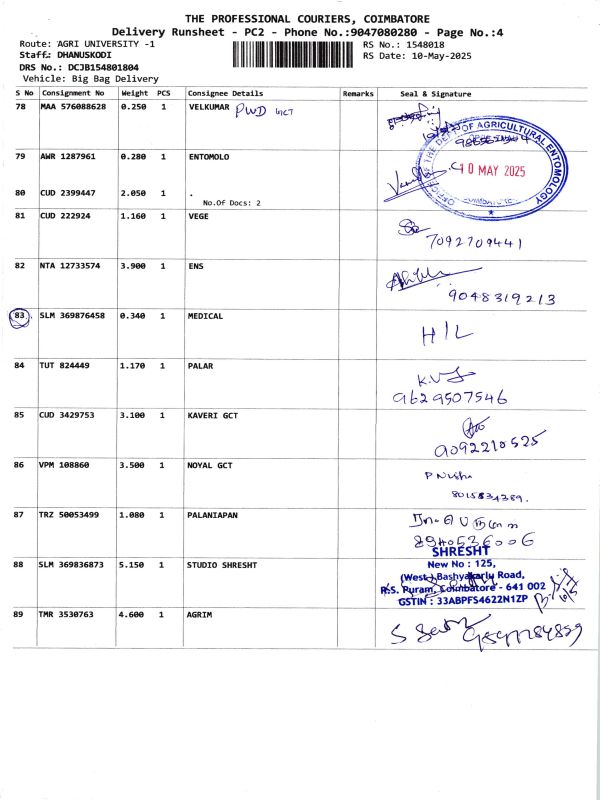 THE PROFESSIONAL COURIERS, COIMBATORE
Delivery Runsheet - PC2 - Phone No.:9047080280 - Page No.:4
Route: AGRI UNIVERSITY -1
RS No.: 1548018
Staff: DHANUSKODI
RS Date: 10-May-2025
DRS No.: DCJB154801804
Vehicle: Big Bag Delivery
S No Consignment No Weight PCS Consignee Details Remarks Seal & Signature
78 MAA 576088628 0.250 1 VELKUMAR PWD GCT
OFFICE OF THE DEPT OF AGRICULTURAL ENTOMOLOGY
10 MAY 2025
COIMBATORE
79 AWR 1287961 0.280 1 ENTOMOLO
80 CUD 2399447 2.050 1 .
No.Of Docs: 2
81 CUD 222924 1.160 1 VEGE
7092709441
82 NTA 12733574 3.900 1 ENS
9048319213
83 SLM 369876458 0.340 1 MEDICAL
H/L
84 TUT 824449 1.170 1 PALAR
9629507546
85 CUD 3429753 3.100 1 KAVERI GCT
9092210525
86 VPM 108860 3.500 1 NOYAL GCT
P Nisha
8015834389.
87 TRZ 50053499 1.080 1 PALANIAPAN
8940536006
88 SLM 369836873 5.150 1 STUDIO SHRESHT
SHRESHT
New No : 125,
(West) Bashyakarlu Road,
R.S. Puram, Coimbatore - 641 002
GSTIN : 33ABPFS4622N1ZP
89 TMR 3530763 4.600 1 AGRIM